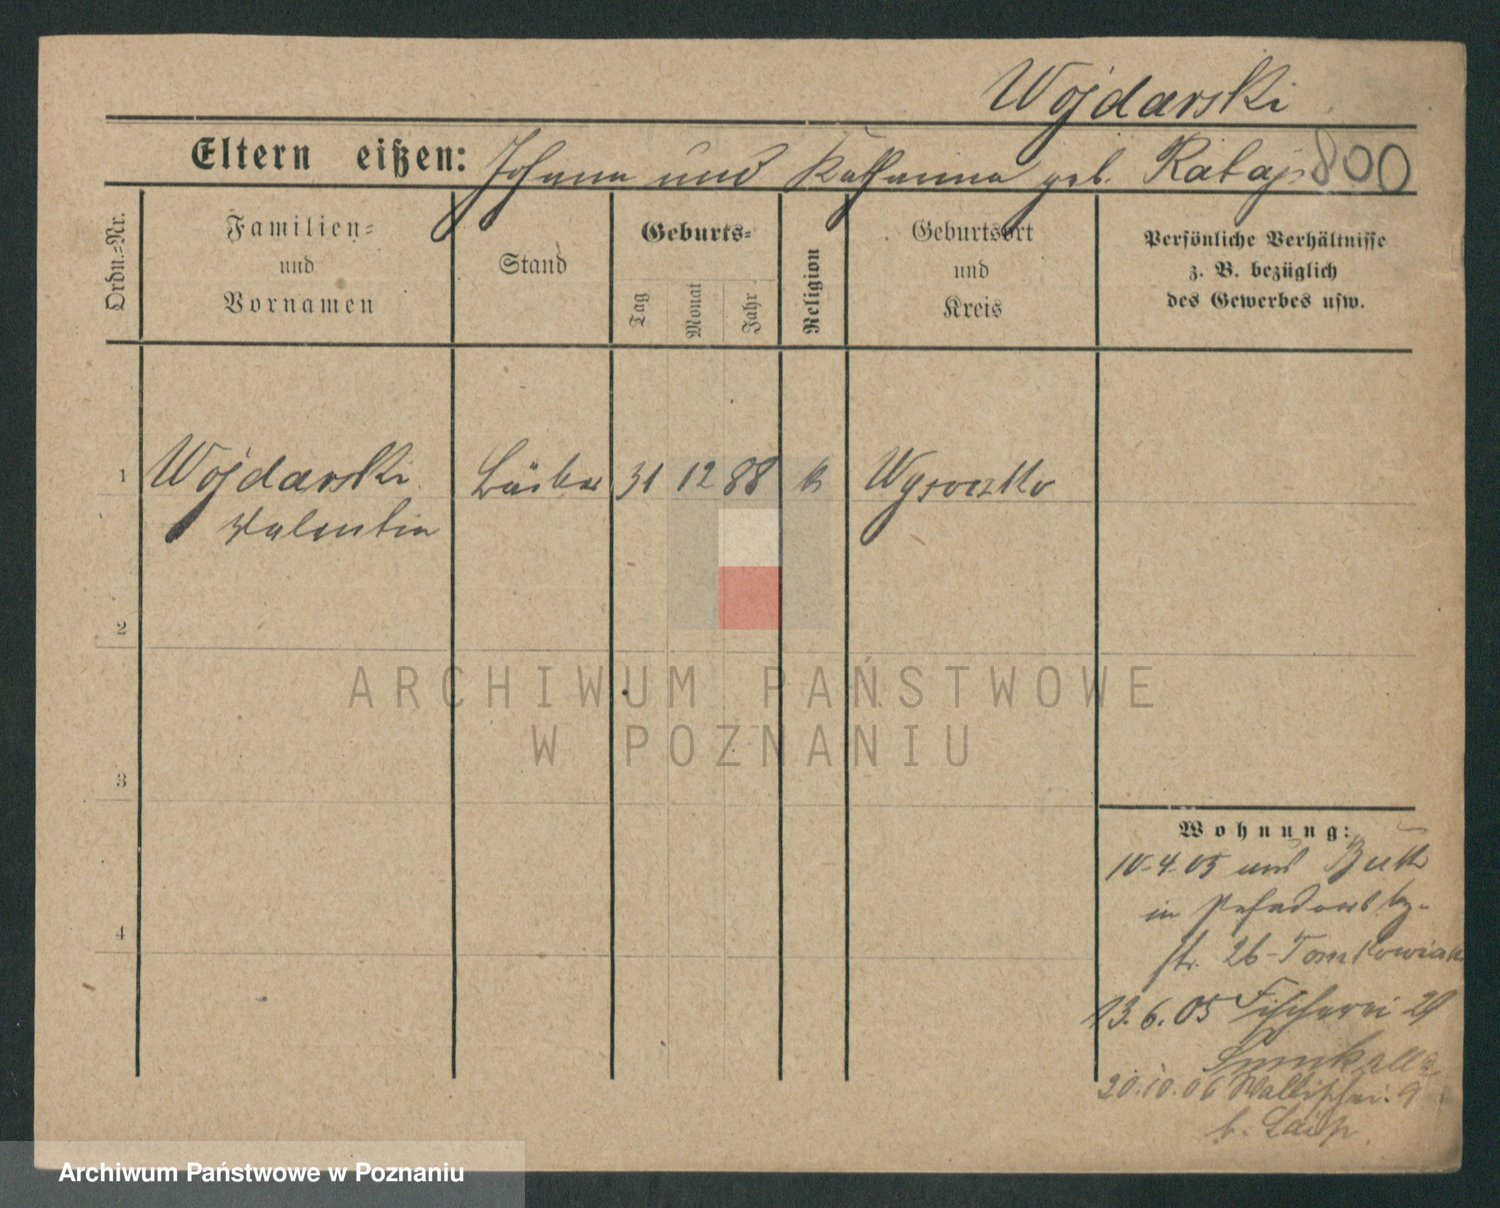 Wojdarski
Eltern heißen: Johann und Katharina geb. Rataj 800
Ordn.-Nr.
Familien-
und
Vornamen
Stand
Geburts-
Tag
Monat
Jahr
Religion
Geburtsort
und
Kreis
Persönliche Verhältnisse
z. B. bezüglich
des Gewerbes usw.
1 Wojdarski Bäcker 31 12 88 k
Valentin
2
3
4
Wohnung:
10.4.05 aus Buk
in
str. 26 Tomkowiak
13.6.05 Fischerei 21
20.10.06 Wallischei. 9
b.
ARCHIWUM PAŃSTWOWE
W POZNANIU
Archiwum Państwowe w Poznaniu